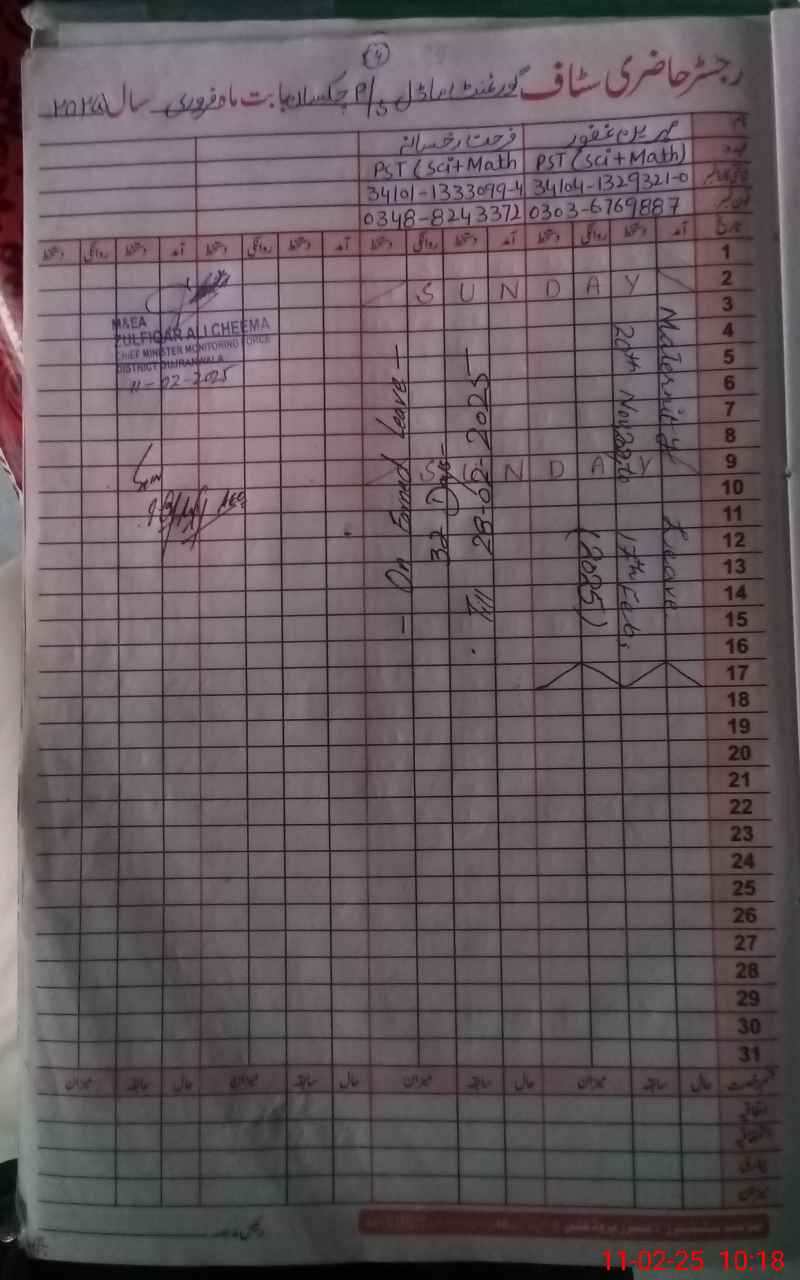 رجسٹر حاضری سٹاف گورنمنٹ ماڈل P/S بابت ماہ فروری سال ۲۰۲۵
نام
مہرین غفور
فرحت رخسانہ
عہدہ
PST (Sci+Math)
PST (Sci+Math
34104-1329321-0
34101-1333099-4
0303-6769887
0348-8243372
تاریخ آمد دستخط روانگی دستخط آمد دستخط روانگی دستخط آمد دستخط روانگی دستخط آمد دستخط روانگی دستخط
1
2
S U N D A Y
3
4
5
6
7
8
9
S U N D A Y
10
11
12
13
14
15
16
17
18
19
20
21
22
23
24
25
26
27
28
29
30
31
Maternity Leave
20th Nov 17th Feb,
(2025)
- On Earned Leave -
32 Days-
Till 28-02-2025-
M&EA
ZULFIQAR ALI CHEEMA
CHIEF MINISTER MONITORING FORCE
DISTRICT GUJRANWALA
11-02-2025
قسم رخصت حال سابقہ میزان حال سابقہ میزان حال سابقہ میزان حال سابقہ میزان
اتفاقیہ
میزان
11-02-25 10:18